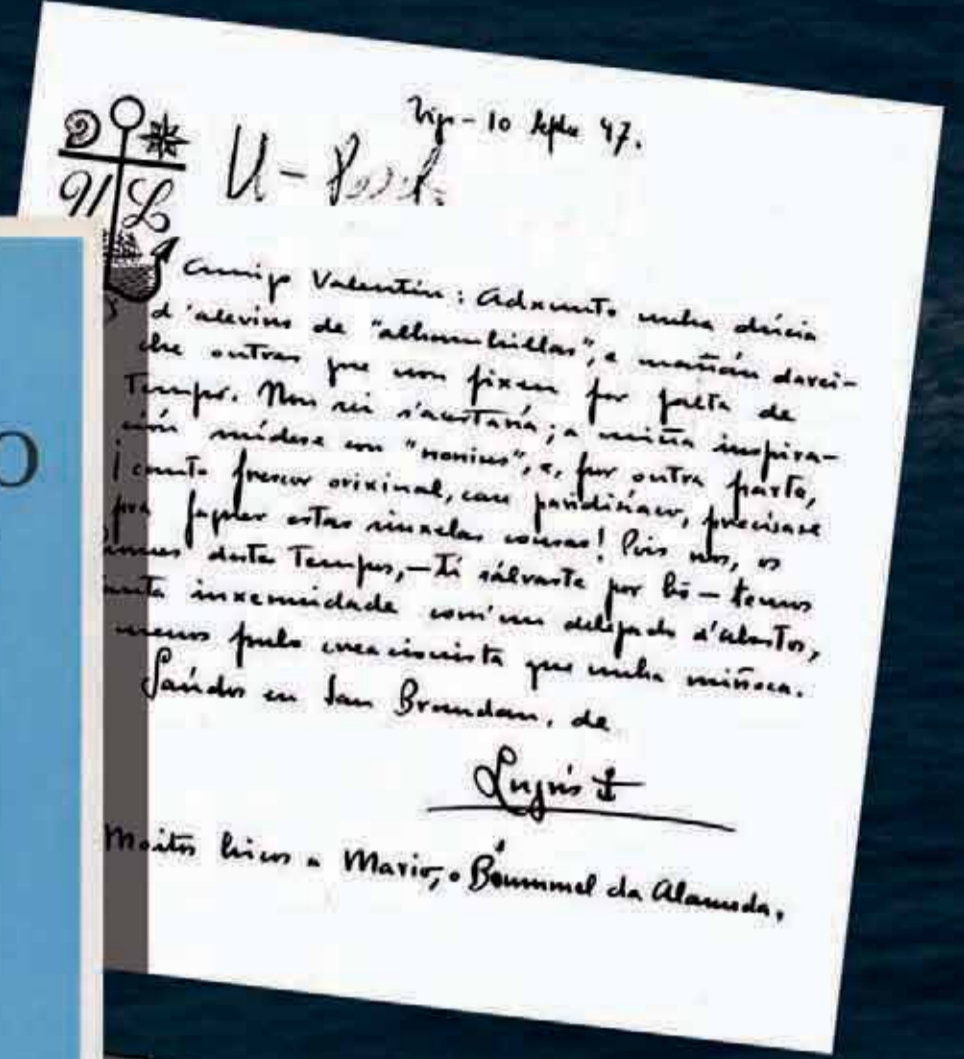 Vigo - 10 septbre 47.
U L
U -
Amigo Valentín: Adxunto unha ducia
d'alevins de "alhambrillas", e mañán darei-
che outras que non fixen por falta de
tempo. Non sei s'acertaría; a miña inspira-
ción mídese con "nonius", e, por outra parte,
¡canto frescor orixinal, cau pandisíaco, precisase
pra faguer estas sinxelas cousas! Pois nos, os
deste tempo, — ti sálvaste por bó — temos
inxenuidade com'un delegado d'abastos,
menos pulo creacionista que unha miñoca.
Saúdos en San Brandan, de
Lugrís
Moitos bicos a Mario, o Brummel da Alameda.
O